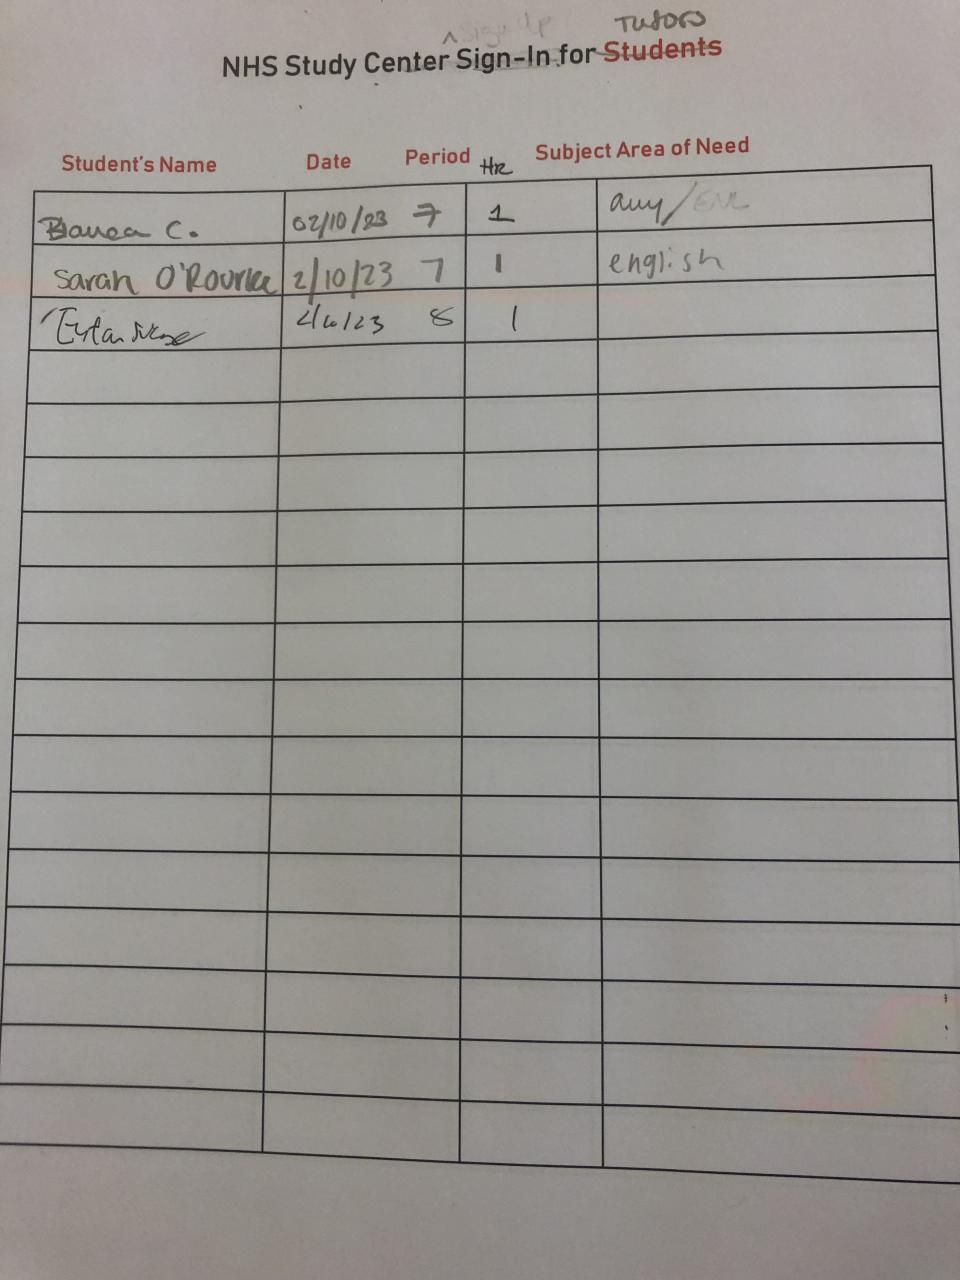 ^ Sign Up Tutors
NHS Study Center Sign-In for Students
Student's Name Date Period HR Subject Area of Need
C. 02/10/23 7 1 any/ENL
Sarah O'Rourke 2/10/23 7 1 english
Eytan 8 1